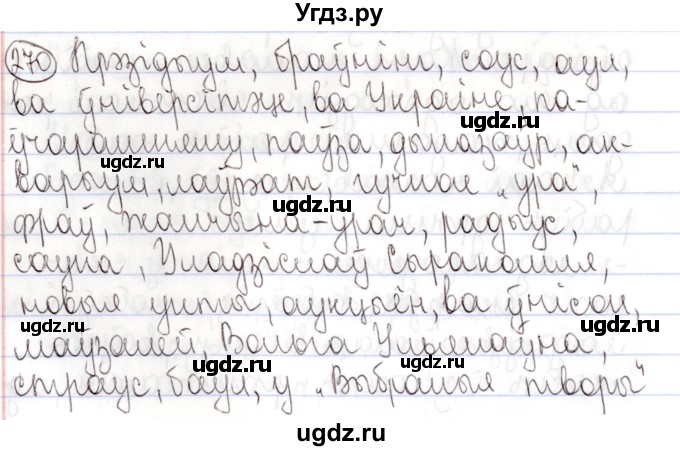 Угдз.ру
270 Прэзідыум, браўнінг, соус, аул,
ва ўніверсітэце, ва Украіне, па-
ўчарашняму, паўза, дыназаўр, ак-
варыум, лаўрэат, гучнае "ура",
фраў, жанчына-урач, радыус,
сауна, Уладзіслаў Сыракомля,
новыя унты, аукцыён, ва ўнісон,
маўзалей, Вольга Ульянаўна,
страус, баул, у "Выбраныя творы"
ugdz.ru
ugdz.ru
ugdz.ru
ugdz.ru
ugdz.ru
ugdz.ru
ugdz.ru
ugdz.ru